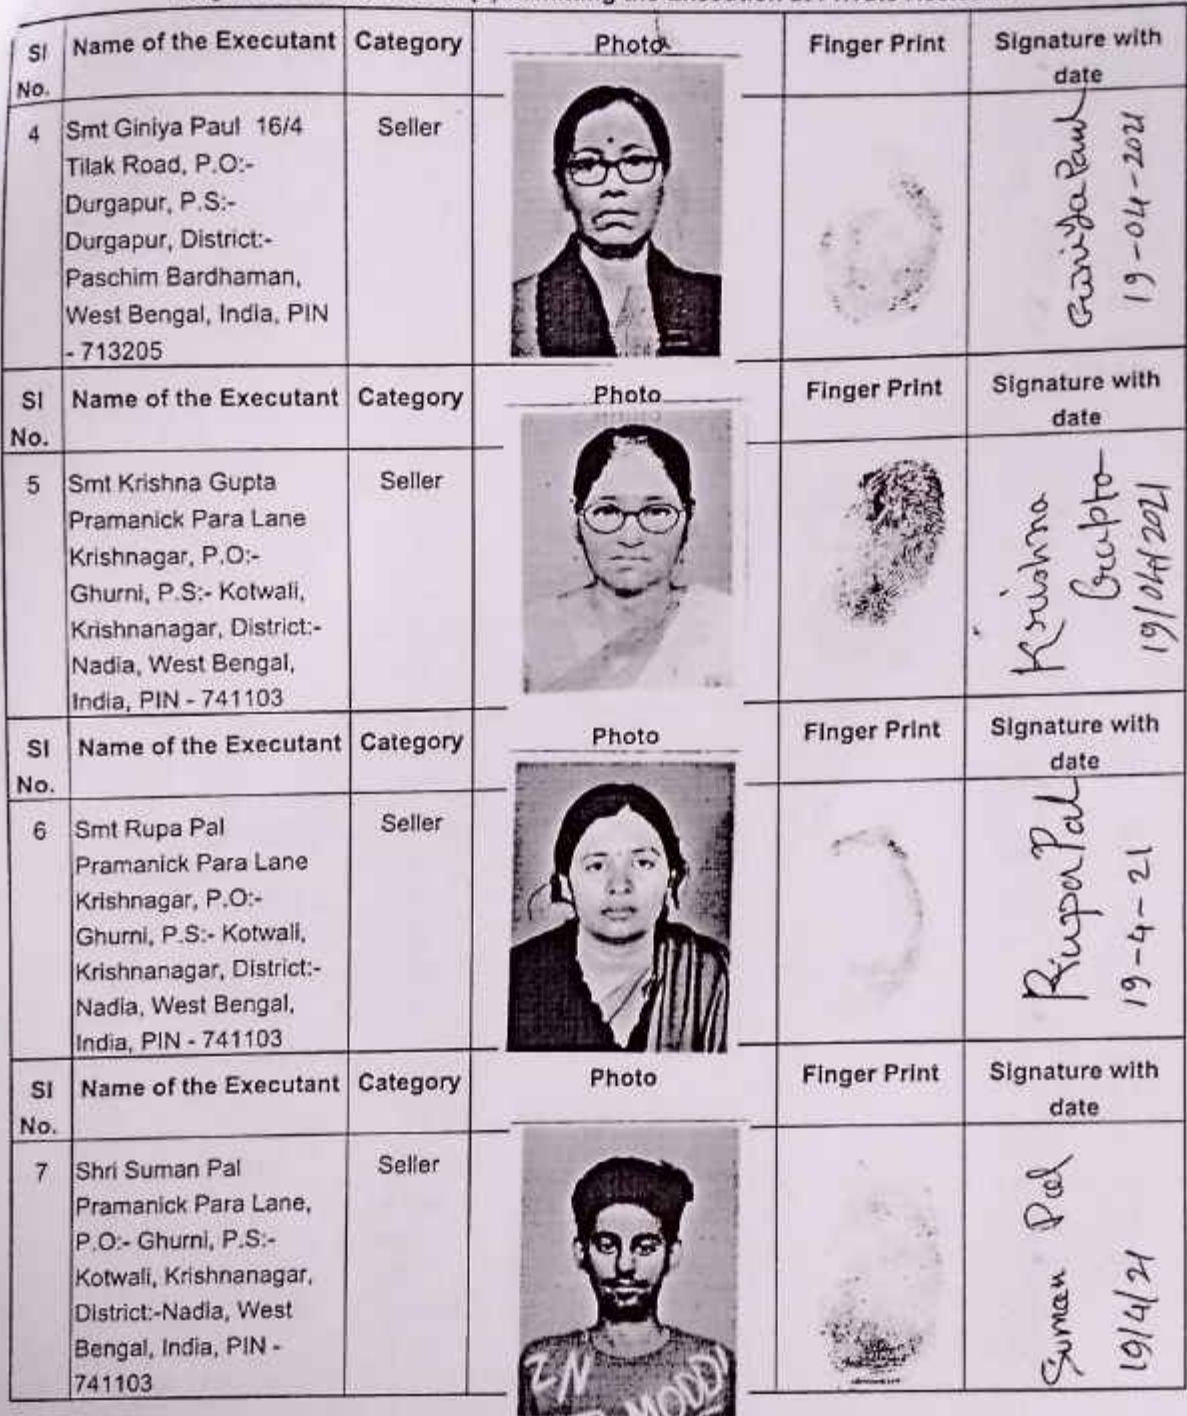 the Execution at Private
Sl No. Name of the Executant Category Photo Finger Print Signature with date
4 Smt Giniya Paul 16/4 Seller
Tilak Road, P.O:-
Durgapur, P.S:-
Durgapur, District:-
Paschim Bardhaman,
West Bengal, India, PIN
- 713205
Giniya Paul
19-04-2021
Sl No. Name of the Executant Category Photo Finger Print Signature with date
5 Smt Krishna Gupta Seller
Pramanick Para Lane
Krishnagar, P.O:-
Ghurni, P.S:- Kotwali,
Krishnanagar, District:-
Nadia, West Bengal,
India, PIN - 741103
Krishna
Gupta
19/04/2021
Sl No. Name of the Executant Category Photo Finger Print Signature with date
6 Smt Rupa Pal Seller
Pramanick Para Lane
Krishnagar, P.O:-
Ghurni, P.S:- Kotwali,
Krishnanagar, District:-
Nadia, West Bengal,
India, PIN - 741103
Rupa Pal
19-4-21
Sl No. Name of the Executant Category Photo Finger Print Signature with date
7 Shri Suman Pal Seller
Pramanick Para Lane,
P.O:- Ghurni, P.S:-
Kotwali, Krishnanagar,
District:-Nadia, West
Bengal, India, PIN -
741103
IN
MODDI
Suman Pal
19/4/21